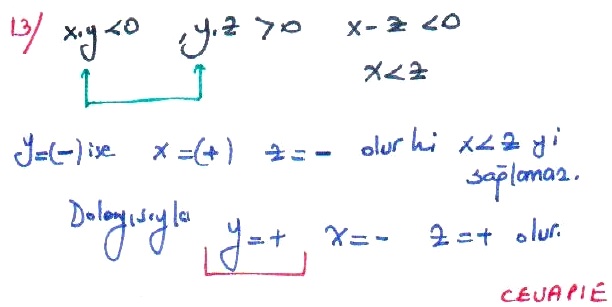 13/ x.y<0 , y.z >0 x-z <0
x<z
y=(-) ise x=(+) z=- olur ki x<z yi
sağlamaz.
Dolayısıyla y=+ x=- z=+ olur.
CEVAP: E